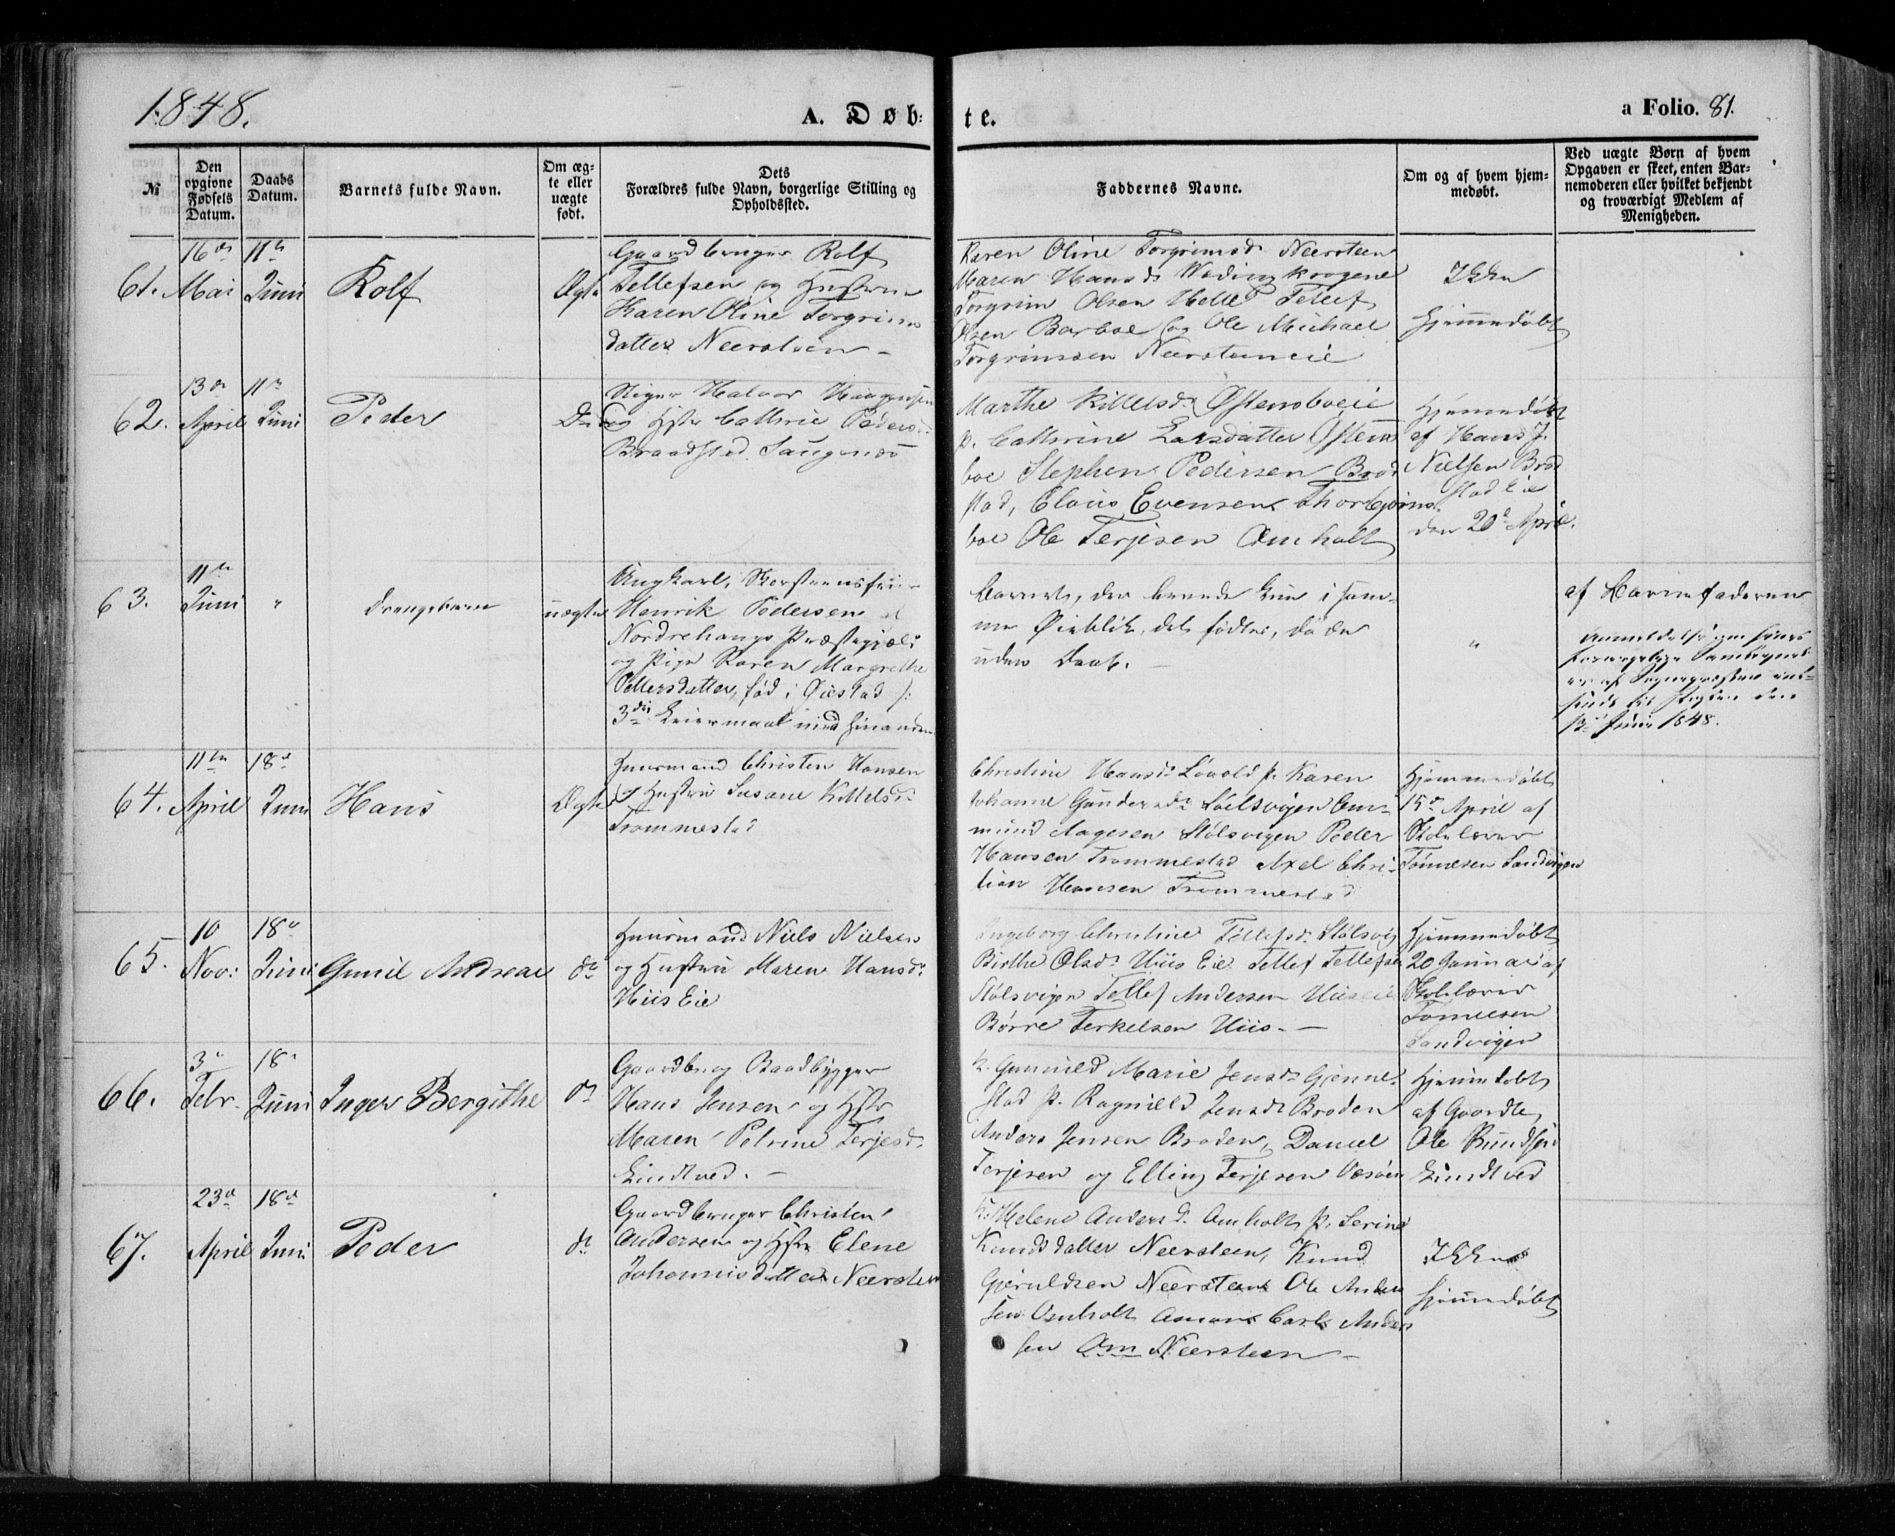 1848.
A. Døb-
te.
a Folio. 81.
№
Den opgivne Fødsels Datum.
Daabs Datum.
Barnets fulde Navn.
Om ægte eller uægte født.
Dets Forældres fulde Navn, borgerlige Stilling og Opholdssted.
Faddernes Navne.
Om og af hvem hjemmedøbt.
Ved uægte Børn af hvem Opgaven er skeet, enten Barnemoderen eller hvilket bekjendt og troværdigt Medlem af Menigheden.
61.
16de
Mai
11te
Juni
Rolf
Ægte
Gaardbruger Rolf
Tellefsen og Hustrue
Karen Oline Torgrims
datter Neersteen
Karen Oline Torgrimsd. Neersteen
Maren Hansd.
Torgrim Olsen Helle Tellef
Olsen Barboe og Ole Michael
Torgrimssen Neersteneie
Ikke
hjemmedøbt
62.
13de
April
11te
Juni
Peder
Halvor
og Hstr Cathrie Peders
Braadsted
Marthe Kittelsd. Østensboeie
p. Cathrine Larsdatter Østens
boe Stephen Pedersen Brod
stad, Claus Evensen Thorbjørns
boe Ole Terjesen Omholt
Hjemmedøbt
af Hans J.
Nielsen Brod
stad Eie
den 20d April.
63.
11te
Juni
"
Drengebarn
uægte
Ungkarl,
Henrik Pedersen
Nordrehaugs Præstegjæld
og Pige Karen Margrethe
Pettersdatter, fød i Øiestad
3die Leiermaal med hinanden
Barnet, der
Øieblik, det fødtes, døde
uden Daab.
"
af Barnefaderen
Juni 1848.
64.
11te
April
18d
Juni
Hans
Ægte
Huusmand Christen Hansen
og Hustru Susane Kittelsd.
Trommestad
Christine Hansd. Løvold p. Karen
Johanne Gundersd. Stølsvigen
mund Aagesen Stølsvigen Peder
Hansen Trommestad Axel Chri-
tian Hansen Trommestad
Hjemmedøbt
15d April af
Skolelærer
Tønnesen Sandvigen
65.
10
Nov:
18d
Juni
Gunil Andreae
do
Huusmand Niels Nielsen
og Hustru Maren Hansd.
Hiis Eie
Ingeborg Christine Tellefsd. Stølsvig
Birthe Olsd. Hiis Eie Tellef Tellefsen
Stølsvigen Tellef Andersen Hiiseie
Børre Terkelsen Hiis.
Hjemmedøbt
20 Januar af
Skolelærer
Tønnesen
Sandvigen
66.
3d
Febr.
18d
Juni
Inger Bergithe
do
Gaardbr. og Baadbygger
Hans Jensen og Hstr
Maren Petrine Terjesd.
Lindtved.
K. Gunnild Marie Jensd. Gjenne-
stad p. Ragnild Jensd. Broden
Anders Jensen Broden, Daniel
Terjesen og Elling Terjesen Væsøen
Hjemmedøbt
af
Ole
Lindtved
67.
23d
April
18d
Juni
Peder
do
Gaardbruger Christen
Andersen og Hstr Elene
Johannisdatter Neersteen
K. Helene Andersd. Omholt p. Serine
Knudsdatter Neersteen, Knud
Gjeruldsen Neersteen Ole Ander
sen Omholt Carl Ander
sen Neersteen
Ikke
hjemmedøbt